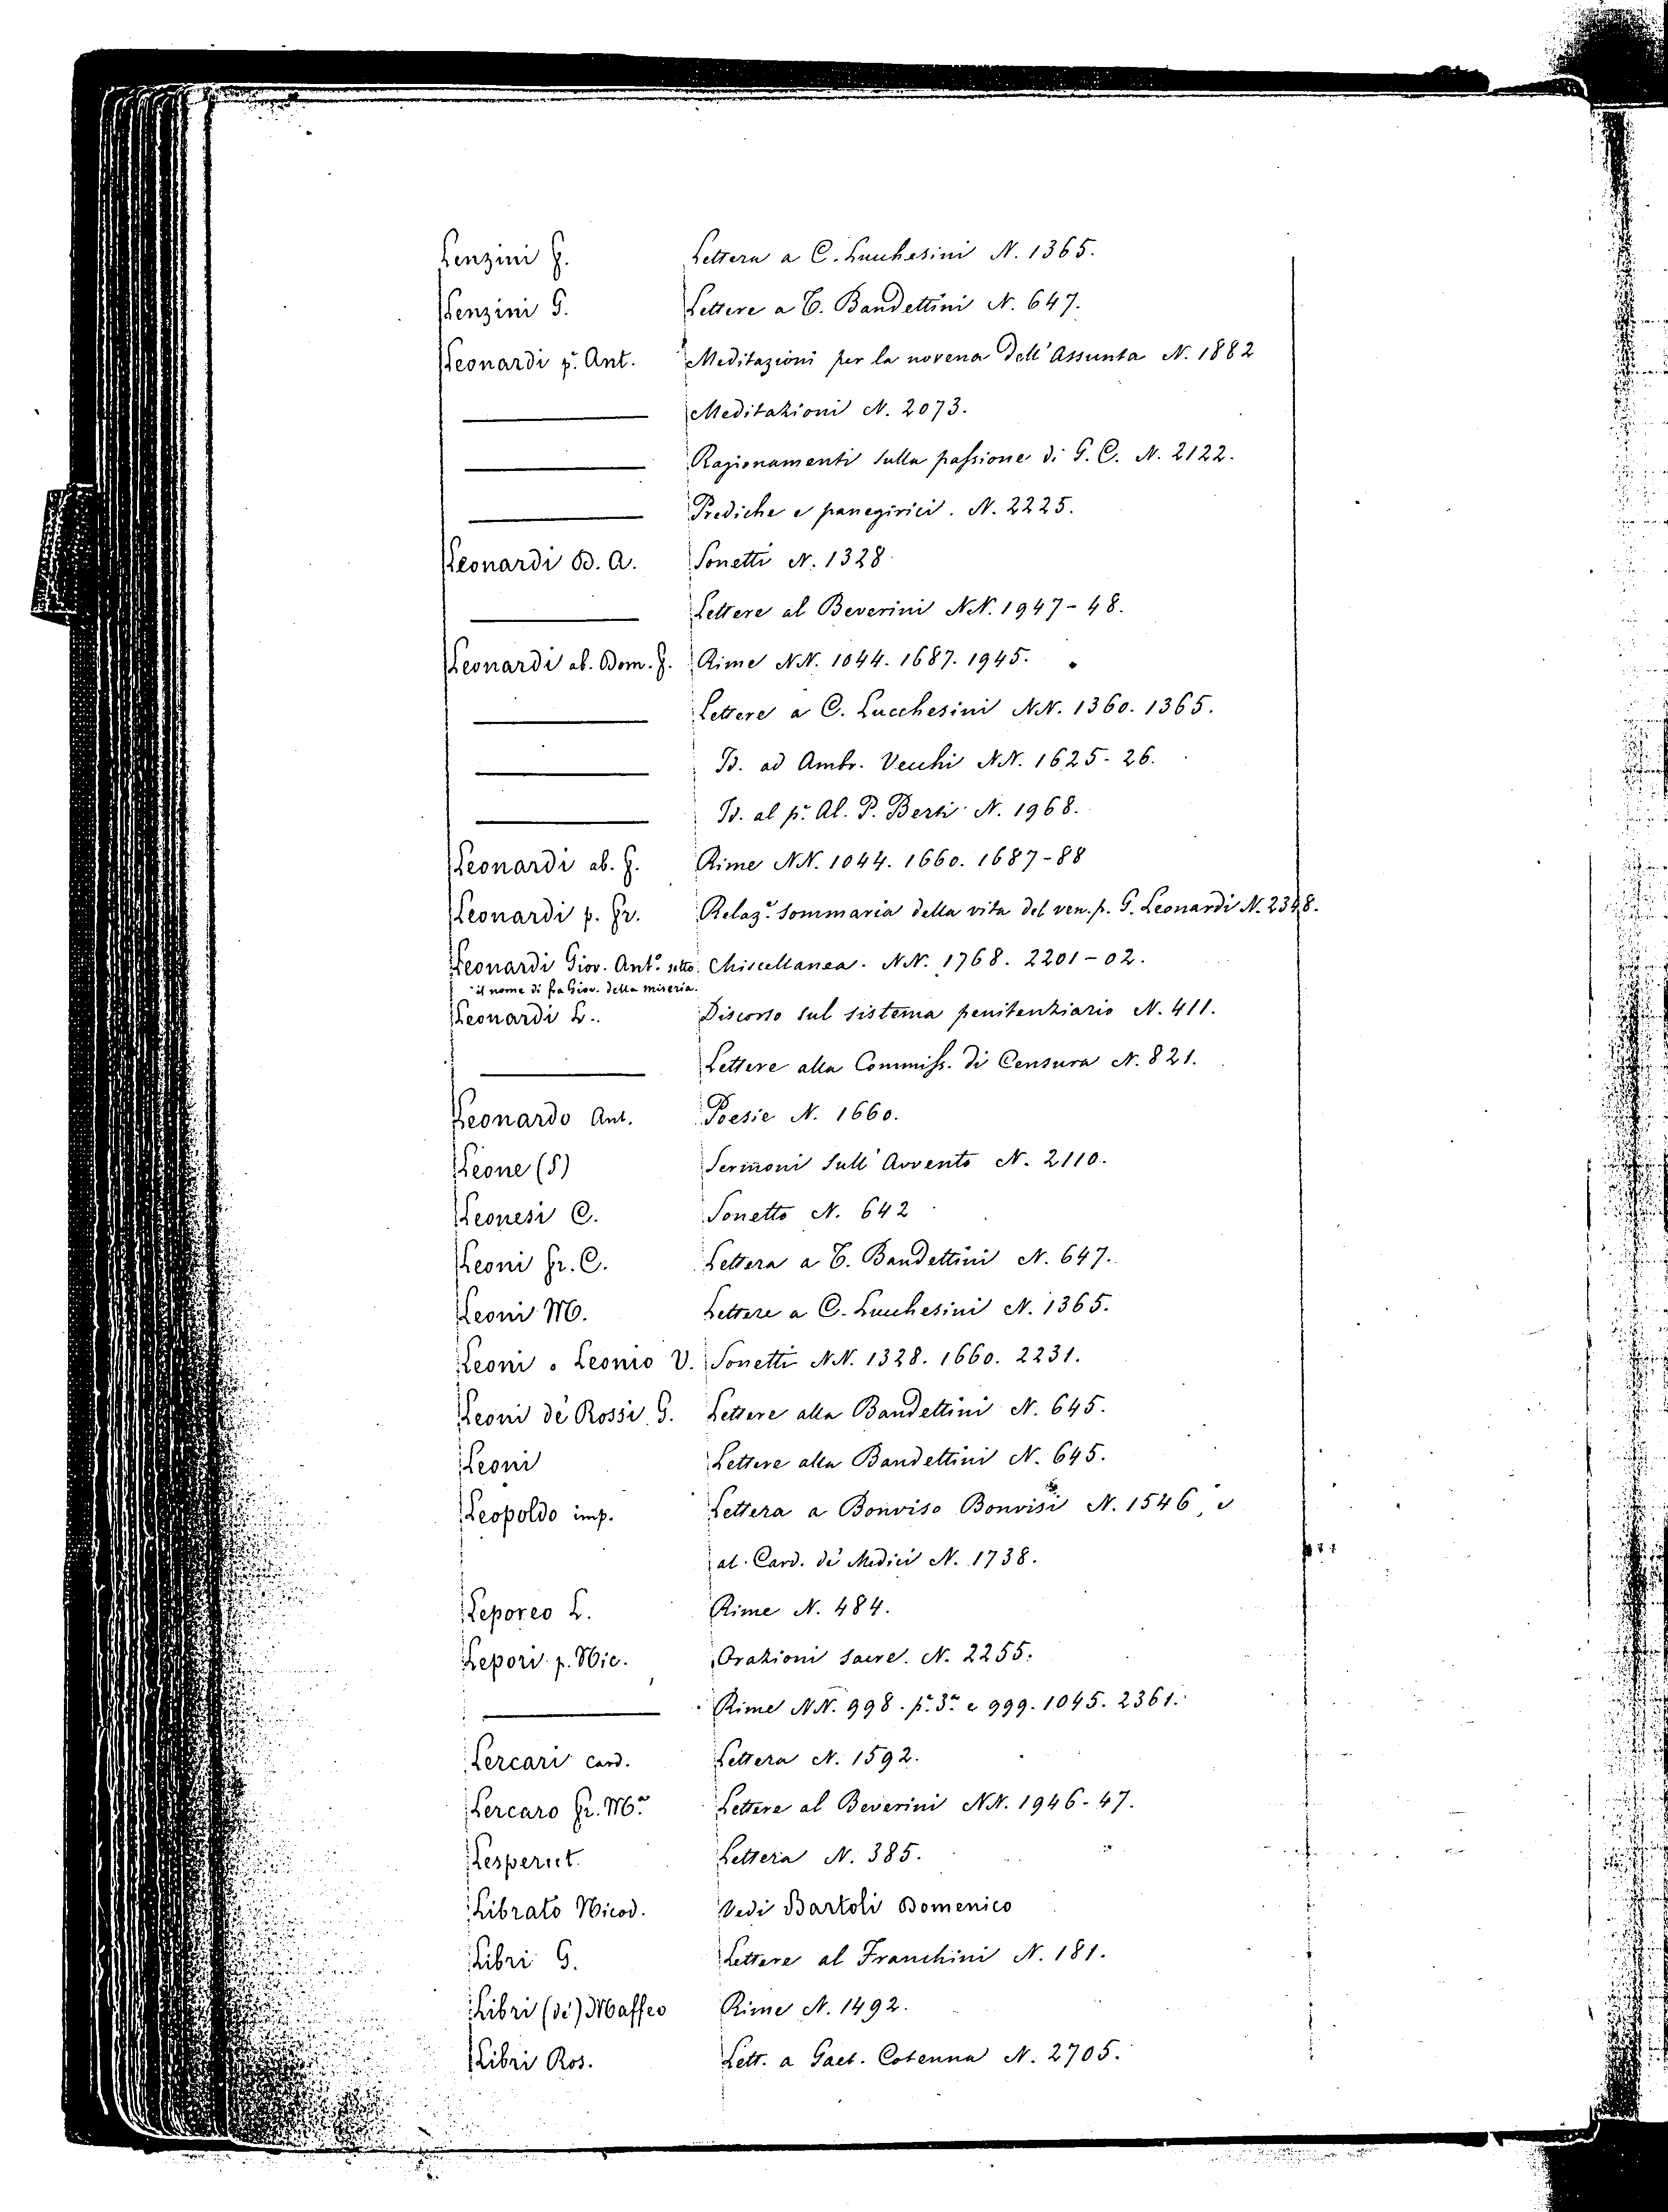 Lenzini F. Lettera a C. Lucchesini N. 1365.
Lenzini G. Lettere a T. Bandettini N. 647.
Leonardi p. Ant. Meditazioni per la novena dell'Assunta N. 1882
Meditazioni N. 2073.
Ragionamenti sulla passione di G. C. N. 2122.
Prediche e panegirici. N. 2225.
Leonardi D. A. Sonetti N. 1328
Lettere al Beverini NN. 1947-48.
Leonardi ab. Dom. F. Rime NN. 1044. 1687. 1945.
Lettere a C. Lucchesini NN. 1360. 1365.
Id. ad Ambr. Vecchi NN. 1625-26.
Id. al p. Al. P. Berti N. 1968.
Leonardi ab. F. Rime NN. 1044. 1660. 1687-88
Leonardi p. Fr. Relaz.e sommaria della vita del ven. p. G. Leonardi N. 2348.
Leonardi Giov. Ant.o sotto Miscellanea. NN. 1768. 2201-02.
il nome di fra Giov. della miseria.
Leonardi L. Discorso sul sistema penitenziario N. 411.
Lettere alla Commiss. di Censura N. 821.
Leonardo Ant. Poesie N. 1660.
Leone (S) Sermoni sull'Avvento N. 2110.
Leonesi C. Sonetto N. 642
Leoni Fr. C. Lettera a T. Bandettini N. 647.
Leoni M. Lettere a C. Lucchesini N. 1365.
Leoni o Leonio V. Sonetti NN. 1328. 1660. 2231.
Leoni de' Rossi G. Lettere alla Bandettini N. 645.
Leoni Lettere alla Bandettini N. 645.
Leopoldo imp. Lettera a Bonviso Bonvisi N. 1546, e
al Card. de' Medici N. 1738.
Leporeo L. Rime N. 484.
Lepori p. Nic. Orazioni sacre. N. 2255.
Rime NN. 998. p.e 3.a e 999. 1045. 2361.
Lercari Card. Lettera N. 1592.
Lercaro Fr. M.a Lettere al Beverini NN. 1946-47.
Lettera N. 385.
Librato Nicod. Vedi Bartoli Domenico
Libri G. Lettere al Franchini N. 181.
Libri (de') Maffeo Rime N. 1492.
Libri Ros. Lett. a Gaet. Cotenna N. 2705.